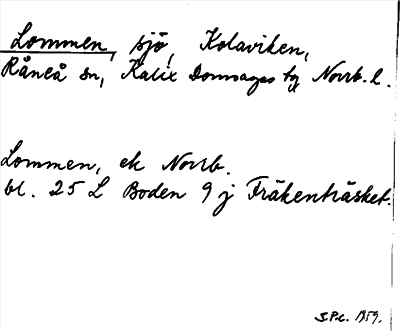 Lommen, sjö, Kolaviken,
Råneå sn, Kalix Domsagas tg Norrb. l.
Lommen, ek Norrb.
bl. 25 L Boden 9 j Fräkenträsket.
1959.